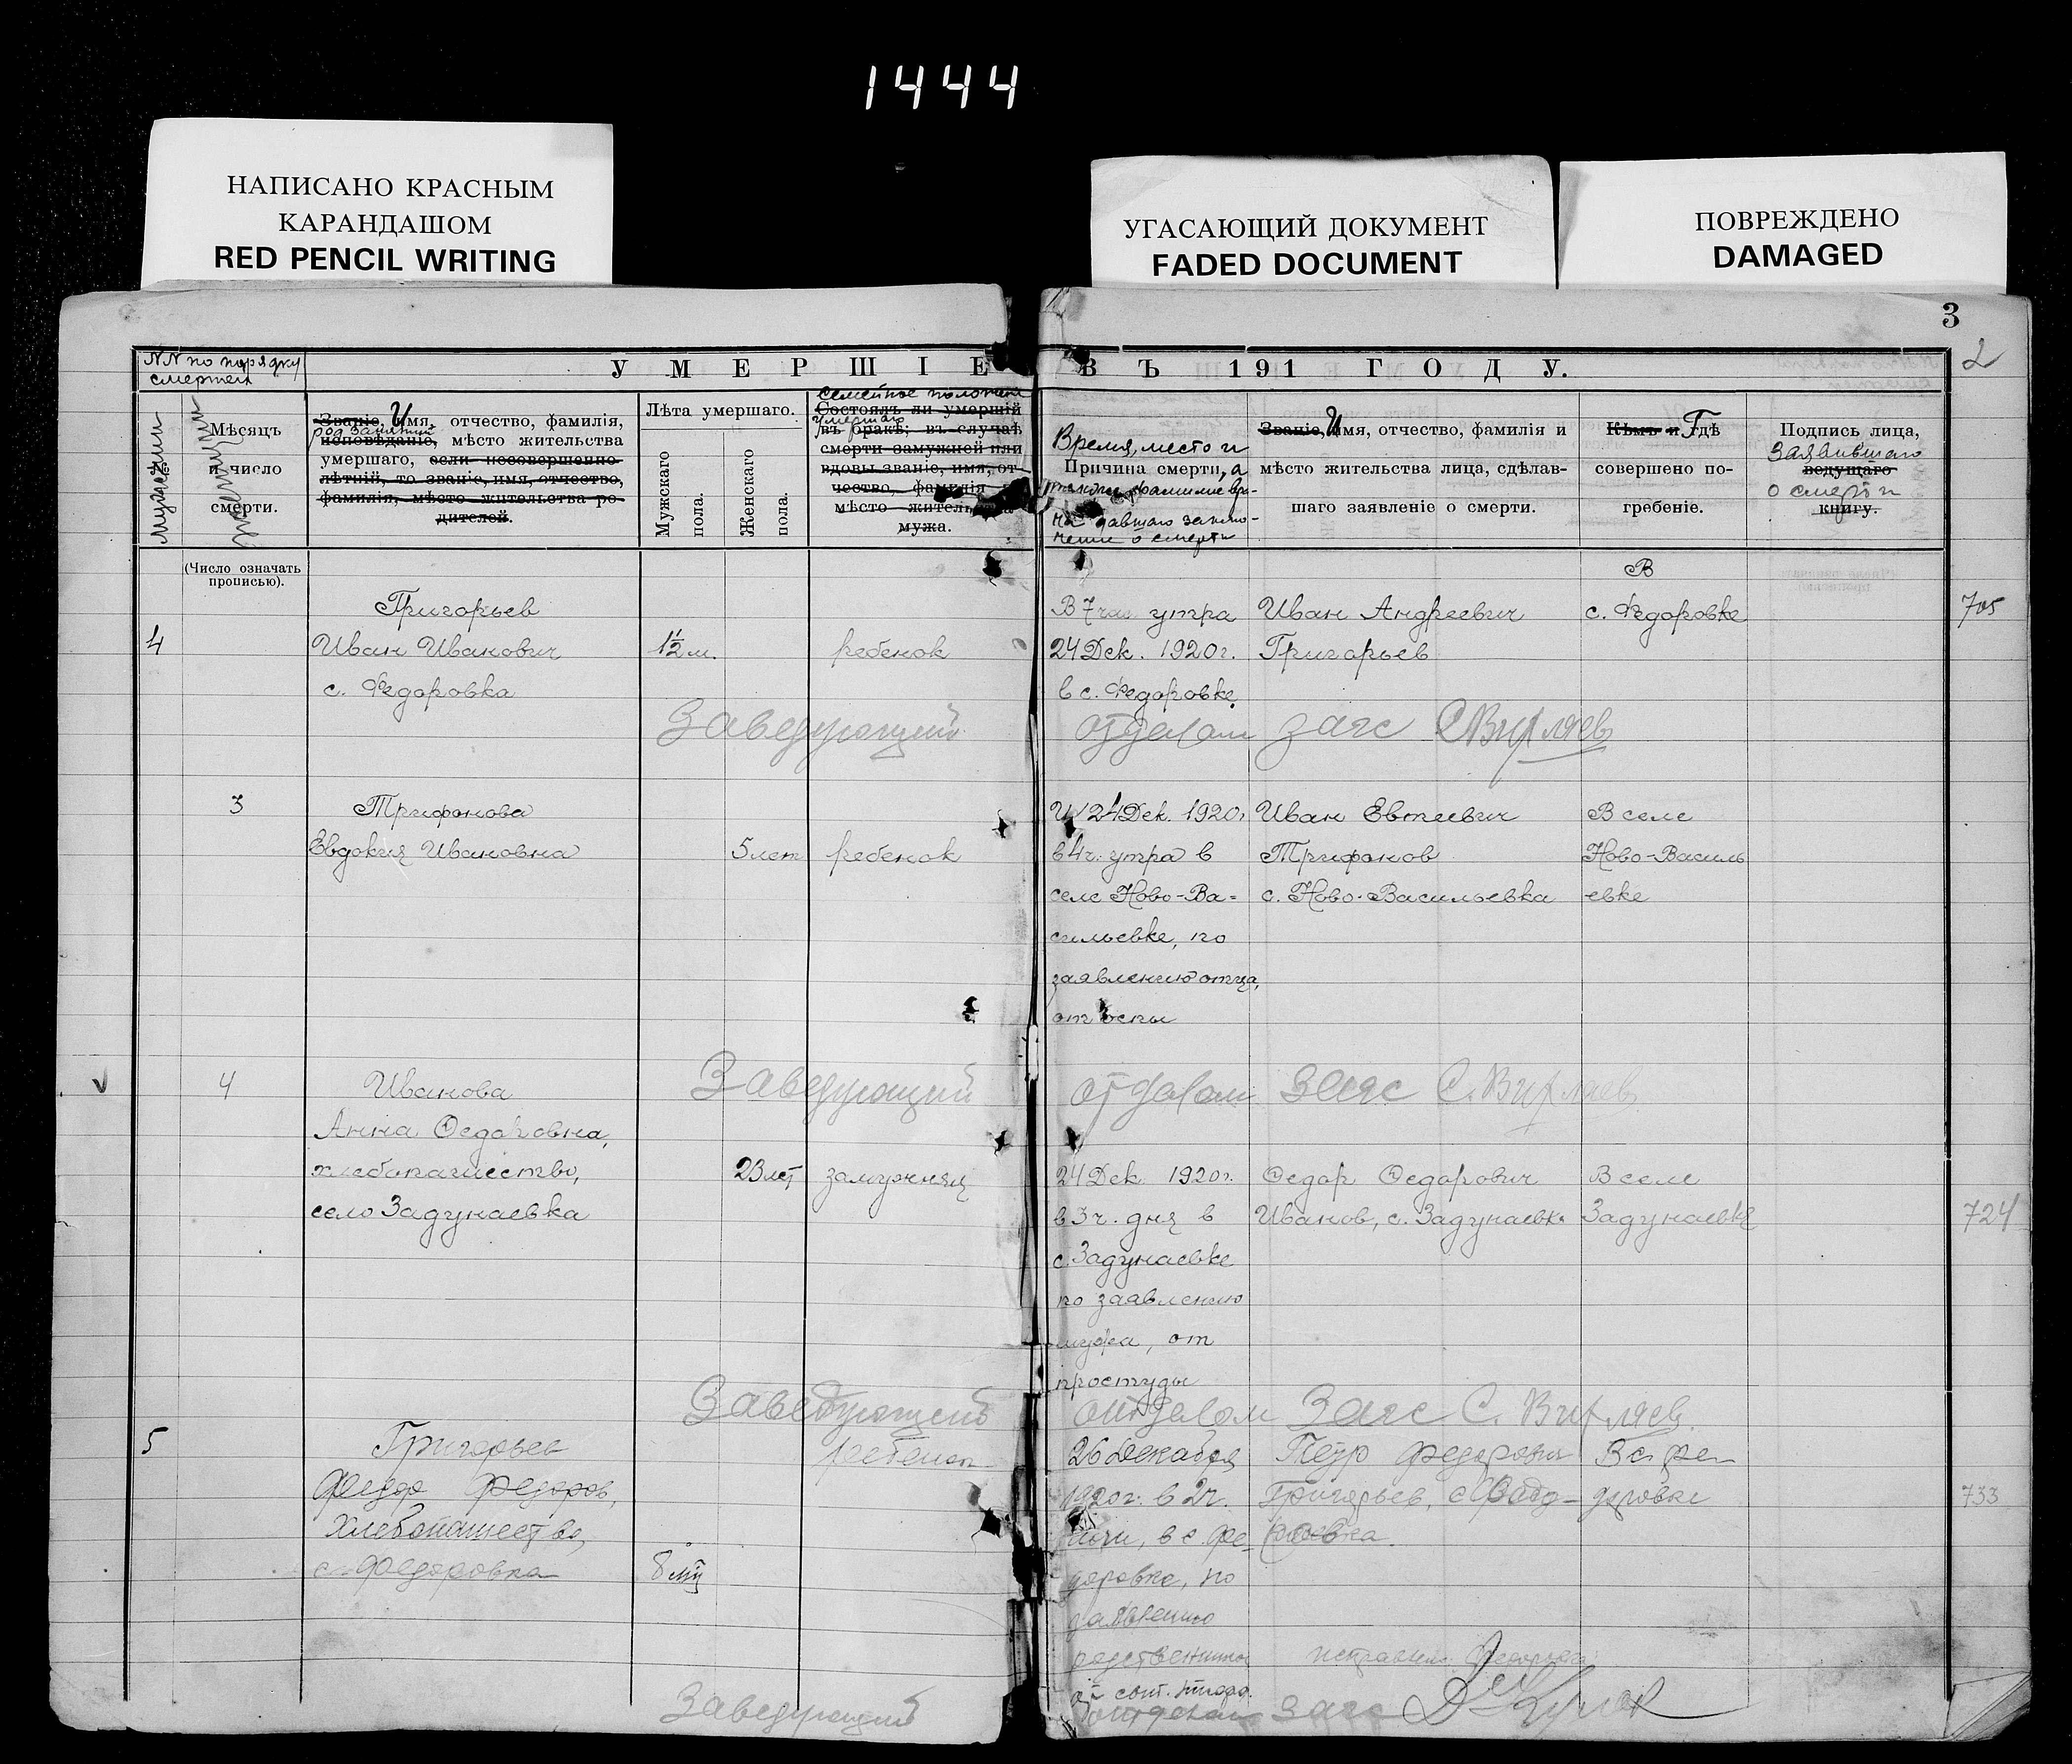 1444
НАПИСАНО КРАСНЫМ
КАРАНДАШОМ
RED PENCIL WRITING
УГАСАЮЩИЙ ДОКУМЕНТ
FADED DOCUMENT
ПОВРЕЖДЕНО
DAMAGED
3
2
NN по порядку
смертей
УМЕРШІЕ
ВЪ 191 ГОДУ.
Мужчин
№
женщин
Мѣсяцъ
и число
смерти.
(Число означать
прописью).
Званіе, Имя, отчество, фамилія,
род занятий
исповѣданіе, мѣсто жительства
умершаго, если несовершенно-
лѣтній, то званіе, имя, отчество,
фамилія, мѣсто жительства ро-
дителей.
Лѣта умершаго.
Мужскаго
пола.
Женскаго
пола.
семейное положен
Состоялъ ли умершій
умершаго
въ бракѣ; въ случаѣ
смерти замужней или
вдовы званіе, имя, от-
чество, фамилія
мѣсто житель
мужа.
Время, место и
Причина смерти, а
также фамилие вра-
ча давшаго заклю-
чение о смерти
Званіе, Имя, отчество, фамилія и
мѣсто жительства лица, сдѣлав-
шаго заявленіе о смерти.
Кѣмъ и Гдѣ
совершено по-
гребеніе.
Подпись лица,
заявившаго
ведущаго
о смерти
книгу.
В
Григорьев
В 7 час утра
Иван Андреевич
с. Федоровке
705
4
Иван Иванович
1½ м.
ребенок
24 Дек. 1920 г.
Григорьев
с. Федоровка
в с. Федоровке.
Заведующий
отделом загс С Вирляев
3
Трифонова
24 Дек. 1920 г.
Иван Евтеевич
В селе
Евдокия Ивановна
5 лет
ребенок
в 4 ч. утра в
Трифонов
Ново-Василь
селе Ново-Ва-
с. Ново-Васильевка
евке
сильевке, по
заявлению отца,
от оспы
Заведующий
отделом загс С. Вирляев
4
Иванова
Анна Федоровна,
хлебопашество,
23 лет
замужняя
24 Дек. 1920 г.
Федор Федорович
В селе
село Задунаевка
в 3 ч. дня в
Иванов, с. Задунаевка
Задунаевке
724
с. Задунаевке
по заявлению
мужа, от
простуды
Заведующий
отделом Загс С. Вирляев.
5
Григорьев
ребенок
26 Декабря
Петр Федорович
В с. Фе-
Федор Федоров,
1920 г. в 2 ч.
Григорьев, с.
доровке
733
Хлебопашество,
ночи, в с. Фе-
с. Федоровка
8 мц
доровке, по
заявлению
родственника
исправлен.
от
Заведующий
отделом загс